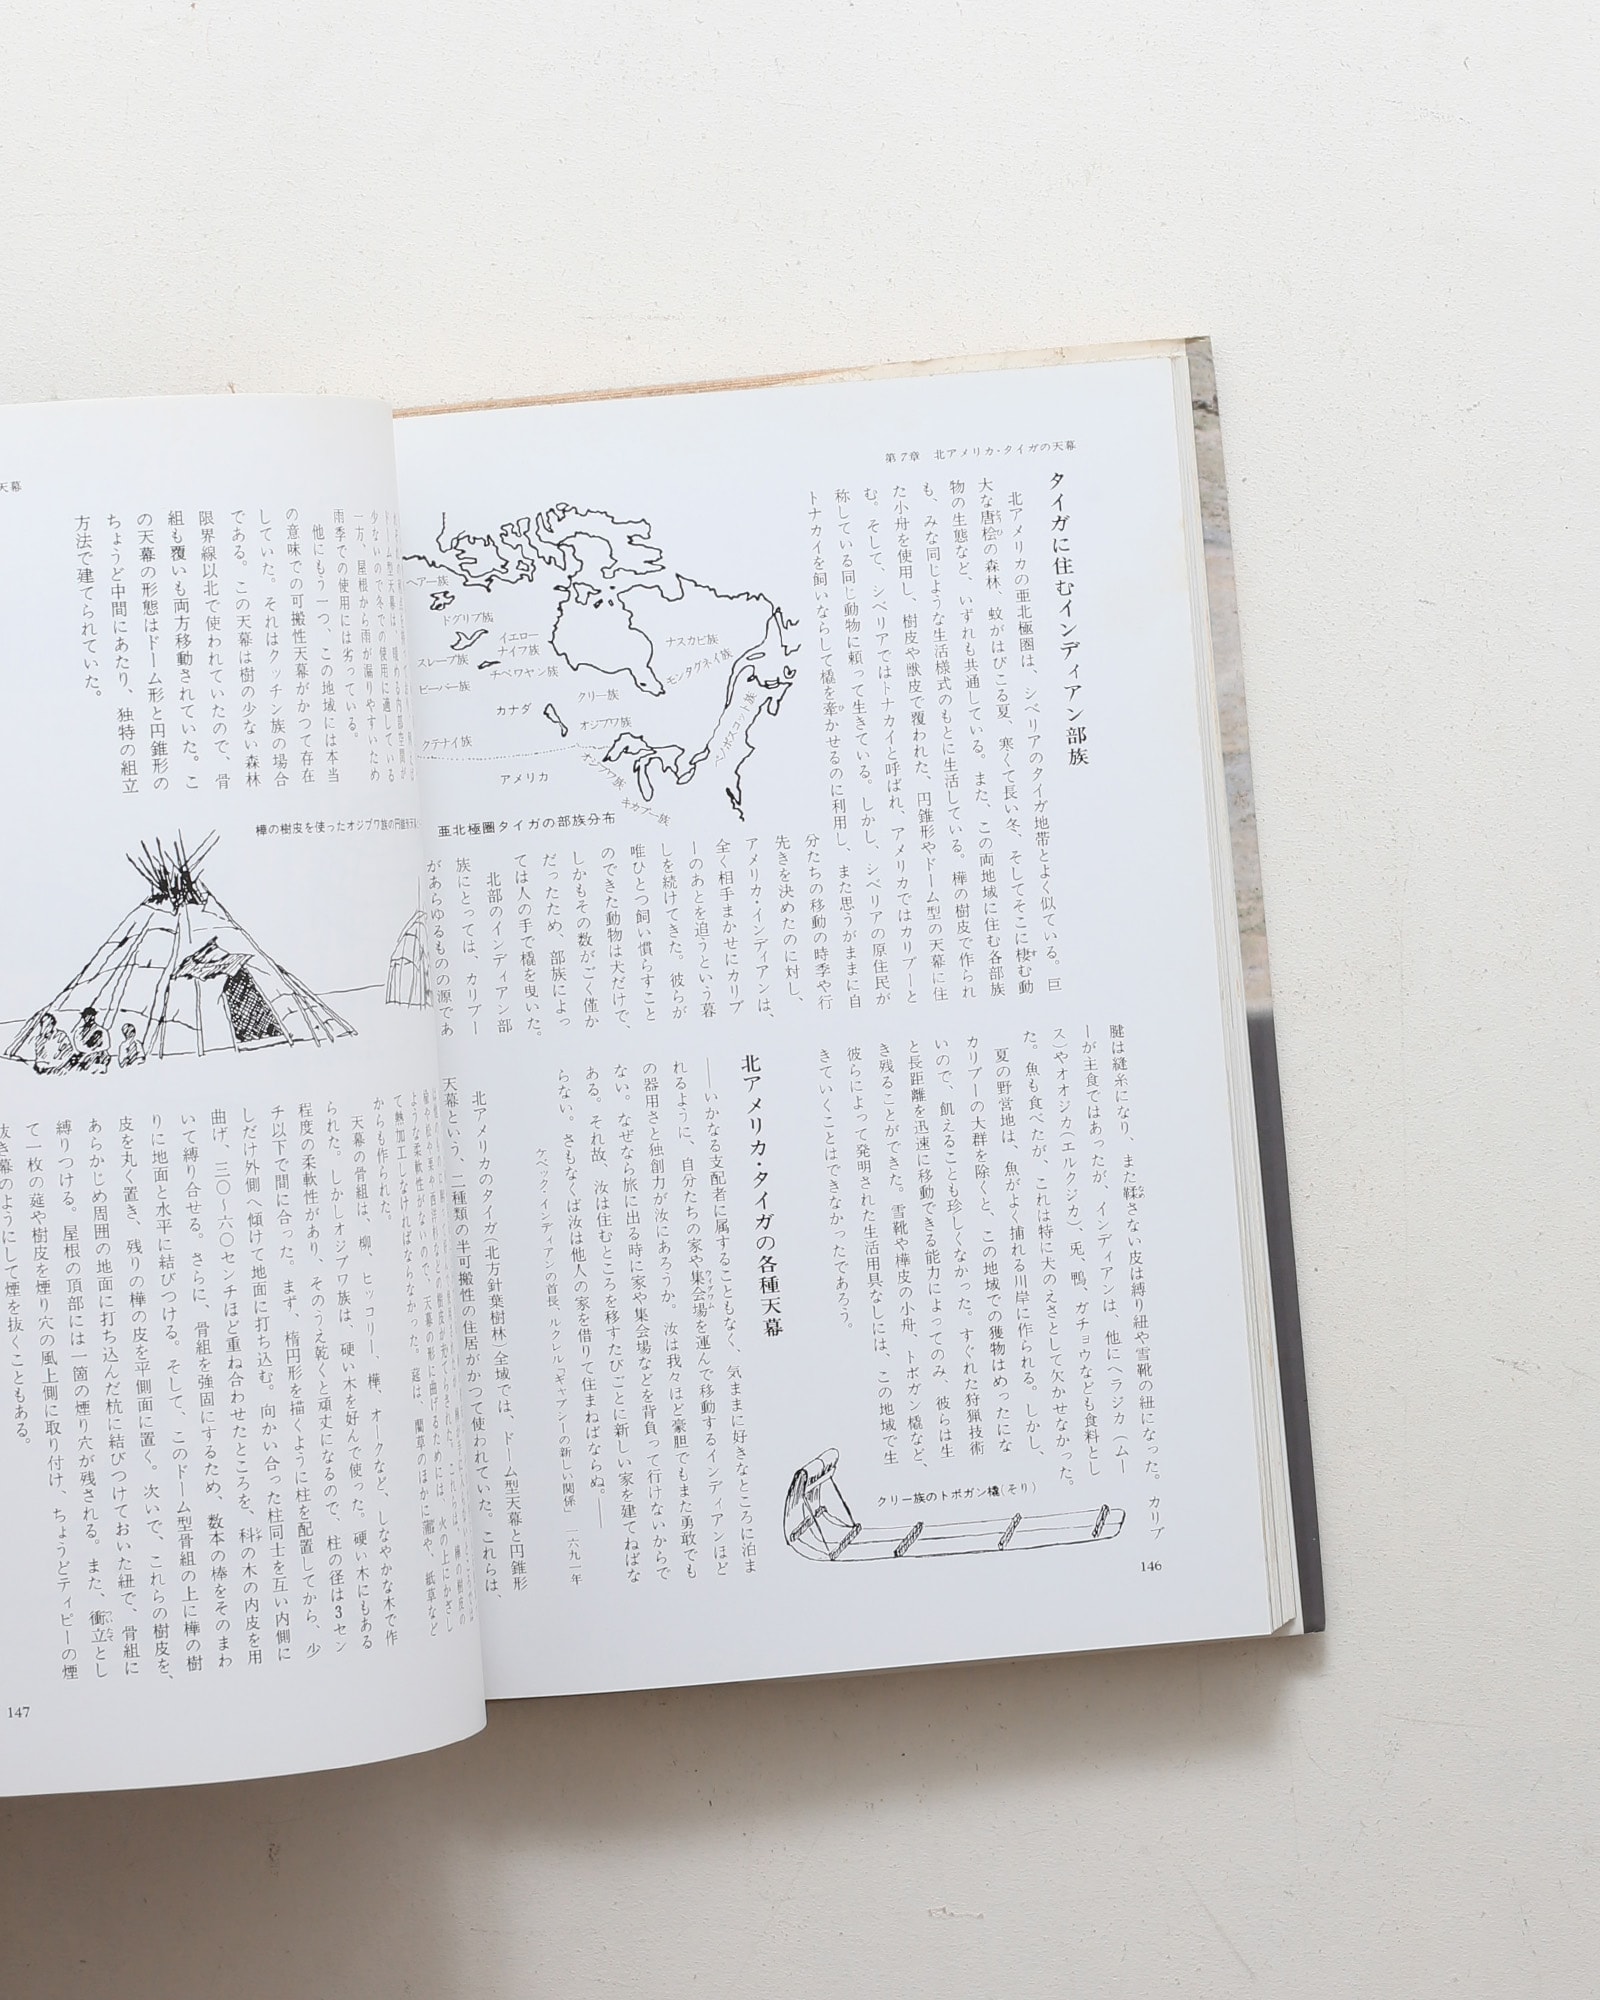 第7章 北アメリカ・タイガの天幕
タイガに住むインディアン部族
北アメリカの亜北極圏は、シベリアのタイガ地帯とよく似ている。巨
大な唐桧の森林、蚊がはびこる夏、寒くて長い冬、そしてそこに棲む動
物の生態など、いずれも共通している。また、この両地域に住む各部族
も、みな同じような生活様式のもとに生活している。樺の樹皮で作られ
た小舟を使用し、樹皮や獣皮で覆われた、円錐形やドーム型の天幕に住
む。そして、シベリアではトナカイと呼ばれ、アメリカではカリブーと
称している同じ動物に頼って生きている。しかし、シベリアの原住民が
トナカイを飼いならして橇を牽かせるのに利用し、また思うがままに自
分たちの移動の時季や行
先きを決めたのに対し、
アメリカ・インディアンは、
全く相手まかせにカリブ
ーのあとを追うという暮
しを続けてきた。彼らが
唯ひとつ飼い慣らすこと
のできた動物は犬だけで、
しかもその数がごく僅か
だったため、部族によっ
ては人の手で橇を曳いた。
北部のインディアン部
族にとっては、カリブー
があらゆるものの源であ
ヘアー族
ドグリブ族
イエロー
ナイフ族
スレーブ族
チペワヤン族
ビーバー族
カナダ
クリー族
オジブワ族
クテナイ族
アメリカ
ナスカピ族
モンタグネイ族
ペノボスコット族
オジブワ族
キカプー族
亜北極圏タイガの部族分布
腱は縫糸になり、また鞣さない皮は縛り紐や雪靴の紐になった。カリブ
ーが主食ではあったが、インディアンは、他にヘラジカ(ムー
ス)やオオジカ(エルクジカ)、兎、鴨、ガチョウなども食料とし
た。魚も食べたが、これは特に犬のえさとして欠かせなかった。
夏の野営地は、魚がよく捕れる川岸に作られる。しかし、
カリブーの大群を除くと、この地域での獲物はめったにな
いので、飢えることも珍しくなかった。すぐれた狩猟技術
と長距離を迅速に移動できる能力によってのみ、彼らは生
き残ることができた。雪靴や樺皮の小舟、トボガン橇など、
彼らによって発明された生活用具なしには、この地域で生
きていくことはできなかったであろう。
クリー族のトボガン橇(そり)
北アメリカ・タイガの各種天幕
——いかなる支配者に属することもなく、気ままに好きなところに泊ま
れるように、自分たちの家や集会場を運んで移動するインディアンほど
の器用さと独創力が汝にあろうか。汝は我々ほど豪胆でもまた勇敢でも
ない。なぜなら旅に出る時に家や集会場などを背負って行けないからで
ある。それ故、汝は住むところを移すたびごとに新しい家を建てねばな
らない。さもなくば汝は他人の家を借りて住まねばならぬ。——
ケベック・インディアンの首長、ルクレル「ギャプシーの新しい関係」一六九一年
北アメリカのタイガ(北方針葉樹林)全域では、ドーム型天幕と円錐形
天幕という、二種類の半可搬性の住居がかつて使われていた。これらは、
146
天幕
少ないので冬での使用に適している
一方、屋根から雨が漏りやすいため
雨季での使用には劣っている。
他にもう一つ、この地域には本当
の意味での可搬性天幕がかつて存在
していた。それはクッチン族の場合
である。この天幕は樹の少ない森林
限界線以北で使われていたので、骨
組も覆いも両方移動されていた。こ
の天幕の形態はドーム形と円錐形の
ちょうど中間にあたり、独特の組立
方法で建てられていた。
樺の樹皮を使ったオジブワ族の円錐形天幕
ような柔軟性がないので、天幕の形に曲げるためには、火の上にかざし
て熱加工しなければならなかった。莚は、藺草のほかに蒲や、紙草など
からも作られた。
天幕の骨組は、柳、ヒッコリー、樺、オークなど、しなやかな木で作
られた。しかしオジブワ族は、硬い木を好んで使った。硬い木にもある
程度の柔軟性があり、そのうえ乾くと頑丈になるので、柱の径は3セン
チ以下で間に合った。まず、楕円形を描くように柱を配置してから、少
しだけ外側へ傾けて地面に打ち込む。向かい合った柱同士を互い内側に
曲げ、三〇〜六〇センチほど重ね合わせたところを、科の木の内皮を用
いて縛り合せる。さらに、骨組を強固にするため、数本の棒をそのまわ
りに地面と水平に結びつける。そして、このドーム型骨組の上に樺の樹
皮を丸く置き、残りの樺の皮を平側面に置く。次いで、これらの樹皮を、
あらかじめ周囲の地面に打ち込んだ杭に結びつけておいた紐で、骨組に
縛りつける。屋根の頂部には一箇の煙り穴が残される。また、衝立とし
て一枚の莚や樹皮を煙り穴の風上側に取り付け、ちょうどティピーの煙
抜き幕のようにして煙を抜くこともある。
147